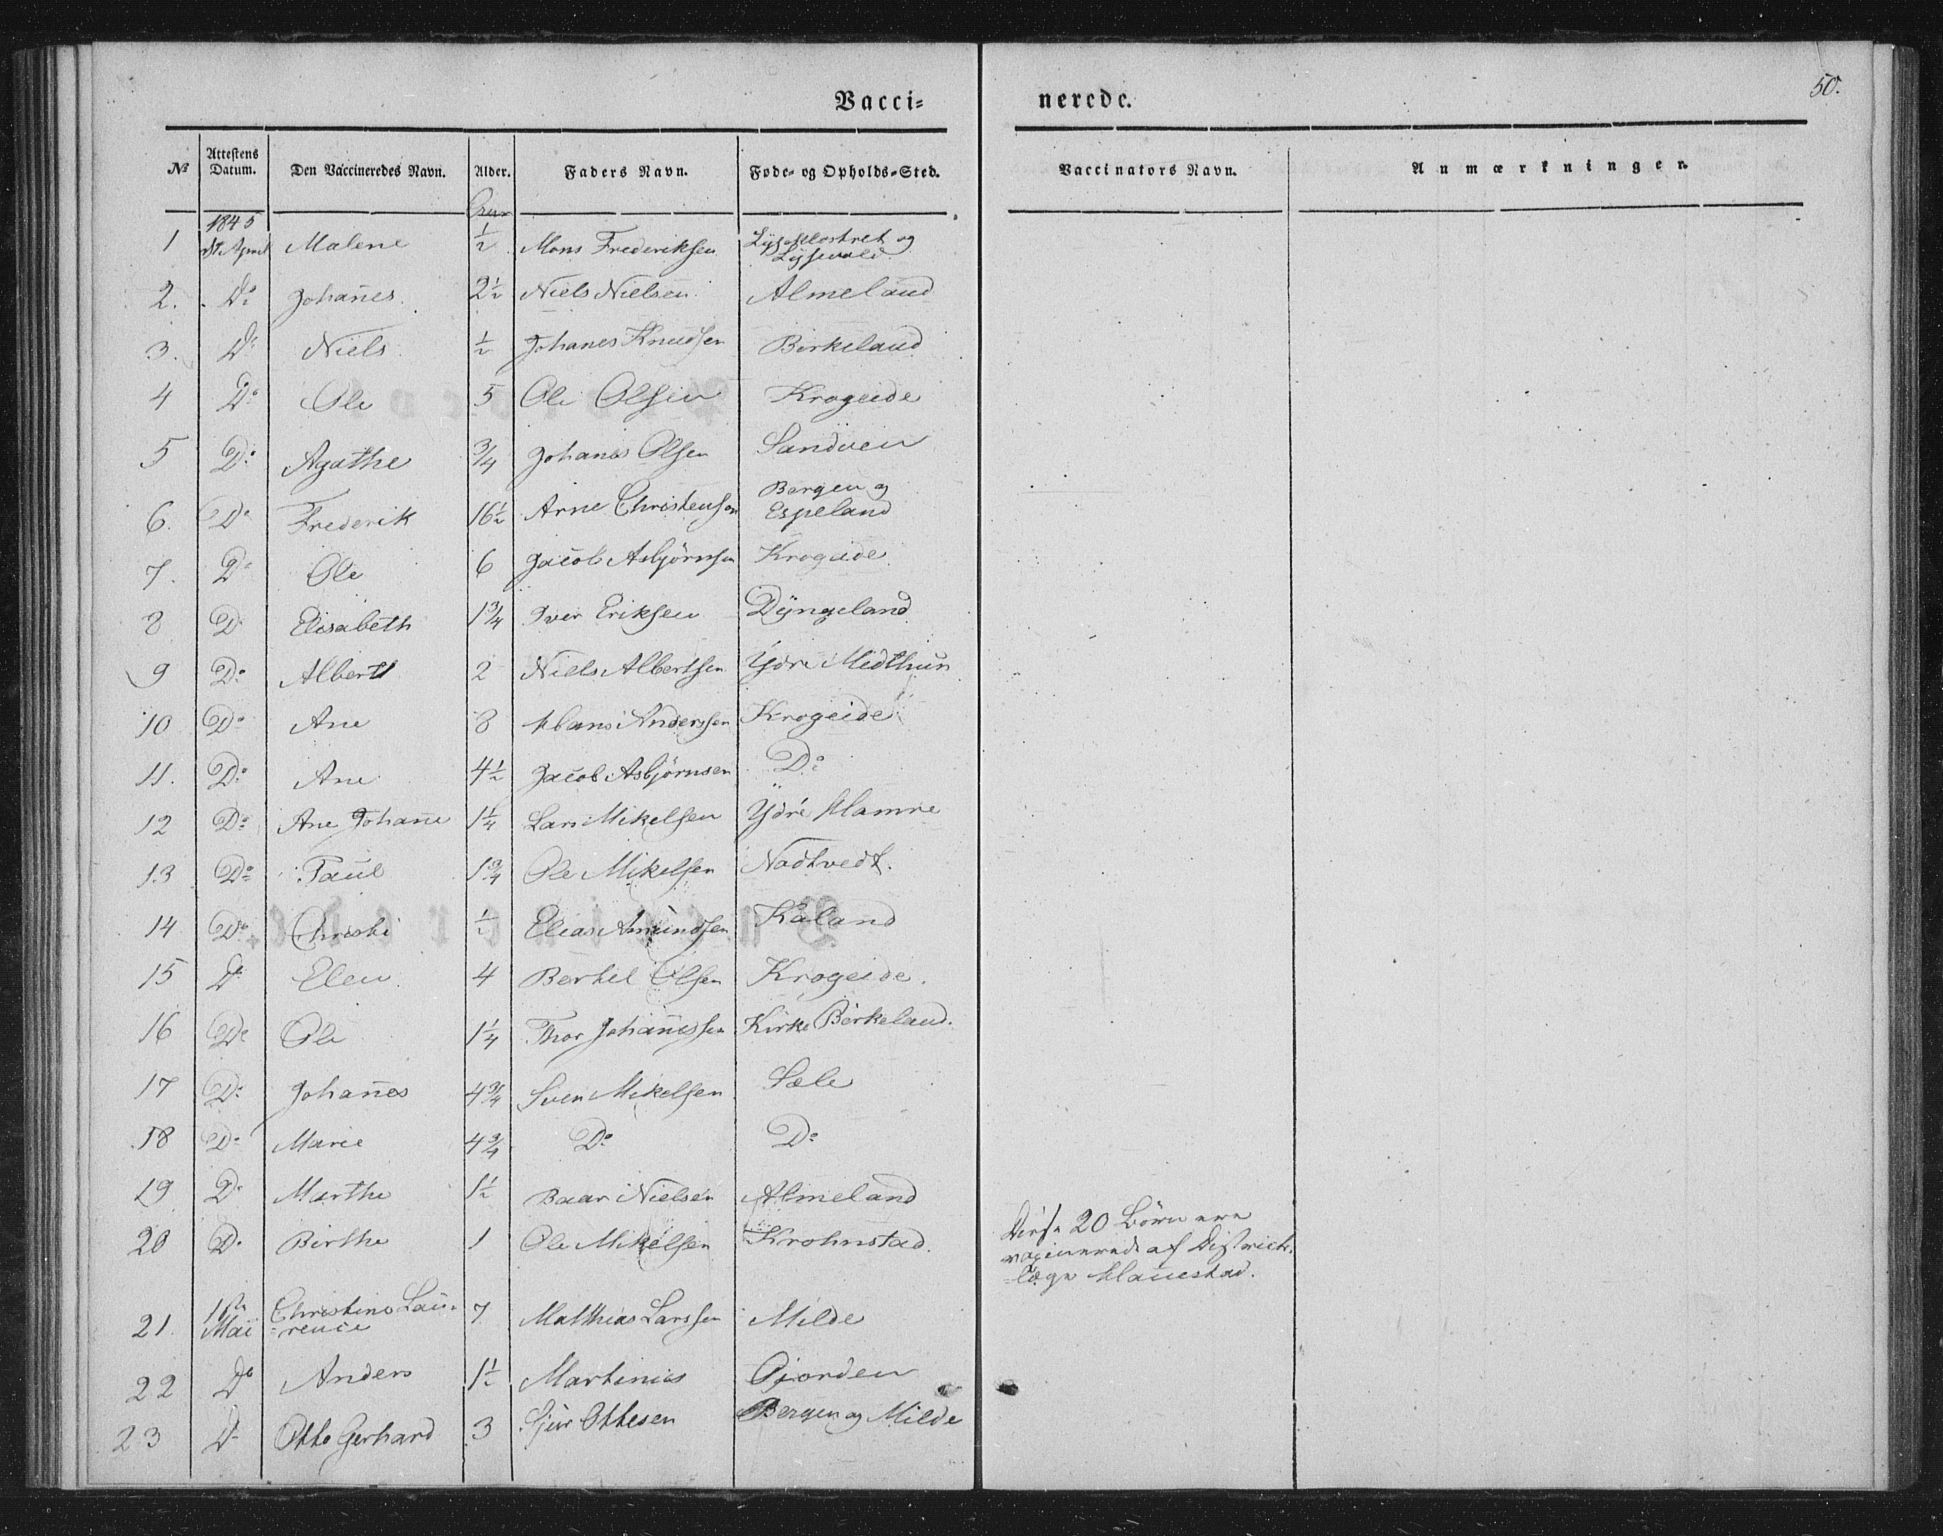 Vacci-
nerede.
50.
No
Attestens Datum.
Den Vaccineredes Navn.
Alder.
Faders Navn.
Føde- og Opholds-Sted.
Vaccinators Navn.
Anmærkninger.
1845
1 April Malene 1/2 Mons Frederiksen Lyseklostret og
Lysevold
2. Do Johan̄es 2 1/2 Niels Nielsen Almeland
3. Do Niels 1/2 Johanes Knudsen Birkeland
4 Do Ole 5 Ole Olsen Krogeide
5 Do Agathe 3/4 Johanes Olsen Sandven
Bergen og
6. Do Frederik 16 1/2 Arne Christensen Espeland
7. Do Ole 6 Jacob Asbjørnsen Krogeide
8 Do Elisabeth 1 3/4 Iver Eriksen Dyngeland
9 Do Albert 2 Niels Albertsen Ydre Midthun
10 Do Ane 8 Hans Anderssen Krogeide
11. Do Ane 4 1/2 Jacob Asbjørnsen Do
12 Do Ane Johan̄e 1 1/4 Lars Mikelsen Ydre Hamre
13 Do Paul 1 3/4 Ole Mikelsen Nadtvedt.
14 Do Christi 1/2 Elias Amundsen Kaland
15 Do Elen 4 Bertel Olsen Krogeide.
16 Do Ole 1 1/4 Thor Johan̄essen Kirke Birkeland.
17 Do Johan̄es 4 3/4 Sven Mikelsen Sæle
18 Do Marie 4 3/4 Do Do
19 Do Marthe 1 1/2 Baar Nielsen Almeland
20 Do Birthe 1 Ole Mikelsen Krohnstad.
Disse 20 Børn ere
vaxinerede af District-
læge Hanestad.
21. 1ste Mai Christine Lau-
rence 7 Matthias Larssen Milde
22 Do Anders 1 1/2 Martinius Gjorden
23 Do Otto Gerhard 3 Sjur Ottesen Bergen og Milde